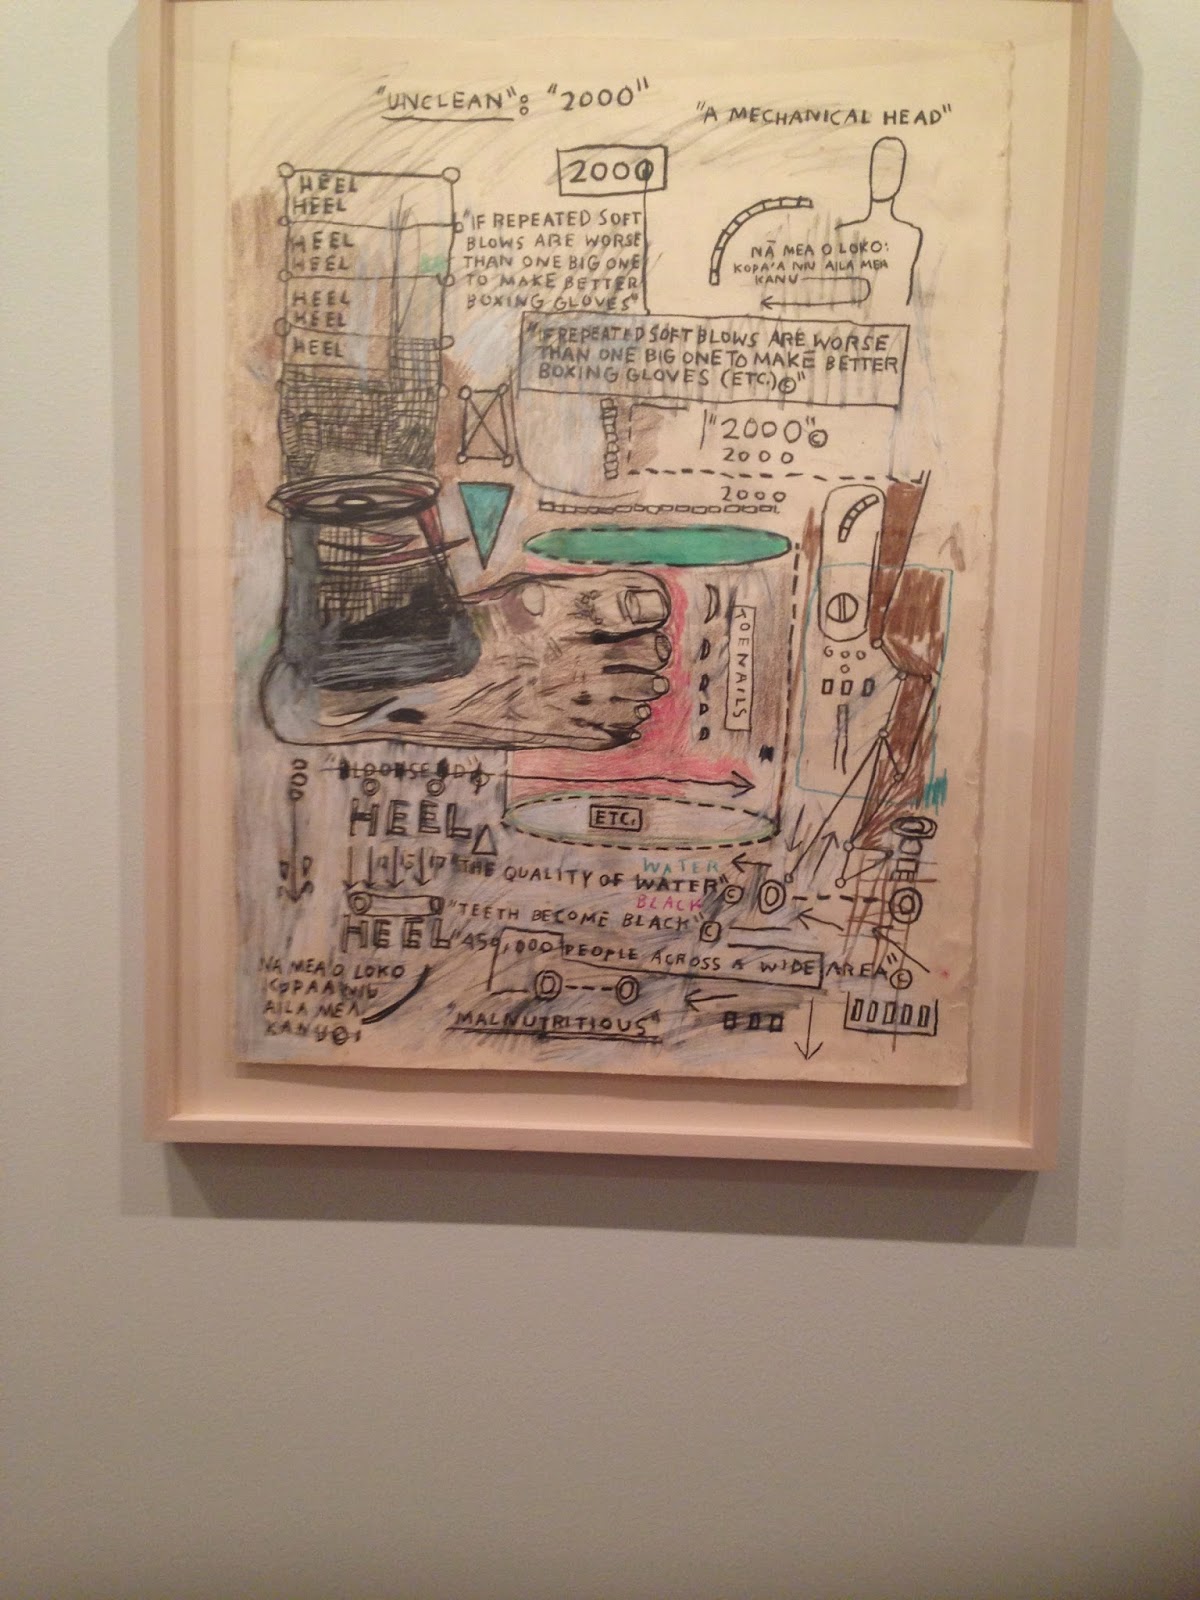 "UNCLEAN": "2000"
"A MECHANICAL HEAD"
2000
HEEL
HEEL
HEEL
HEEL
HEEL
HEEL
HEEL
"IF REPEATED SOFT
BLOWS ARE WORSE
THAN ONE BIG ONE
TO MAKE BETTER
BOXING GLOVES"
NĀ MEA O LOKO:
KOPA'A NIU AILA MEA
KANU
"IF REPEATED SOFT BLOWS ARE WORSE
THAN ONE BIG ONE TO MAKE BETTER
BOXING GLOVES (ETC.)©"
"2000"©
2000
2000
TOENAILS
ETC.
HEEL
WATER
"THE QUALITY OF WATER"©
BLACK
"TEETH BECOME BLACK"©
HEEL
"450,000 PEOPLE ACROSS A WIDE AREA"©
NA MEA O LOKO
KOPAA NIU
AILA MEA
KANU
"MALNUTRITIOUS"